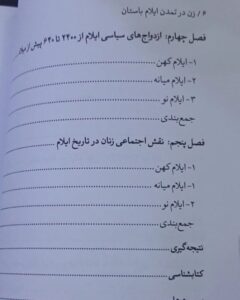 ۶ / زن در تمدن ایلام باستان
فصل چهارم: ازدواج‌های سیاسی ایلام از ۲۴۰۰ تا ۶۴۰ پیش از
۱- ایلام کهن
۲- ایلام میانه
۳- ایلام نو
جمع‌بندی
فصل پنجم: نقش اجتماعی زنان در تاریخ ایلام
۱- ایلام کهن
۱- ایلام میانه
۲- ایلام نو
جمع‌بندی
نتیجه‌گیری
کتابشناسی